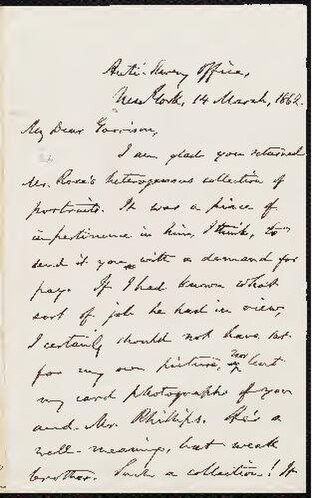 Anti-Slavery Office,
New York, 14 March, 1862.
My Dear Garrison,
I am glad you returned
Mr. Rose's heterogeneous collection of
portraits. It was a piece of
impertinence in him, I think, to
send it to you with a demand for
pay. If I had known what
sort of job he had in view,
I certainly should not have sat
for my own picture, nor lent
my card photographs of you
and Mr. Phillips. He's a
well-meaning, but weak
brother. Such a collection! It